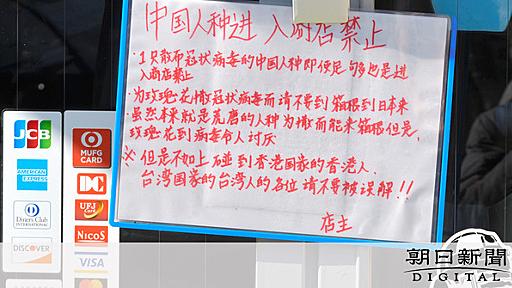 中国人种进 入商店禁止
・1只散布冠状病毒的中国人种即便足够也是进
入商店禁止
・为玫瑰花撒冠状病毒而请不要到箱根到日本来
虽然本来就是荒唐的人种为撒而能来箱根但是,
玫瑰花到病毒令人讨厌
※但是不如上碰到香港国家的香港人、
台湾国家的台湾人的各位请不要被误解!!
店主
JCB
MUFG
CARD
AMERICAN
EXPRESS
DC
Diners Club
INTERNATIONAL
UFJ
Card
NICOS
DISCOVER
VISA
朝日新聞
DIGITAL